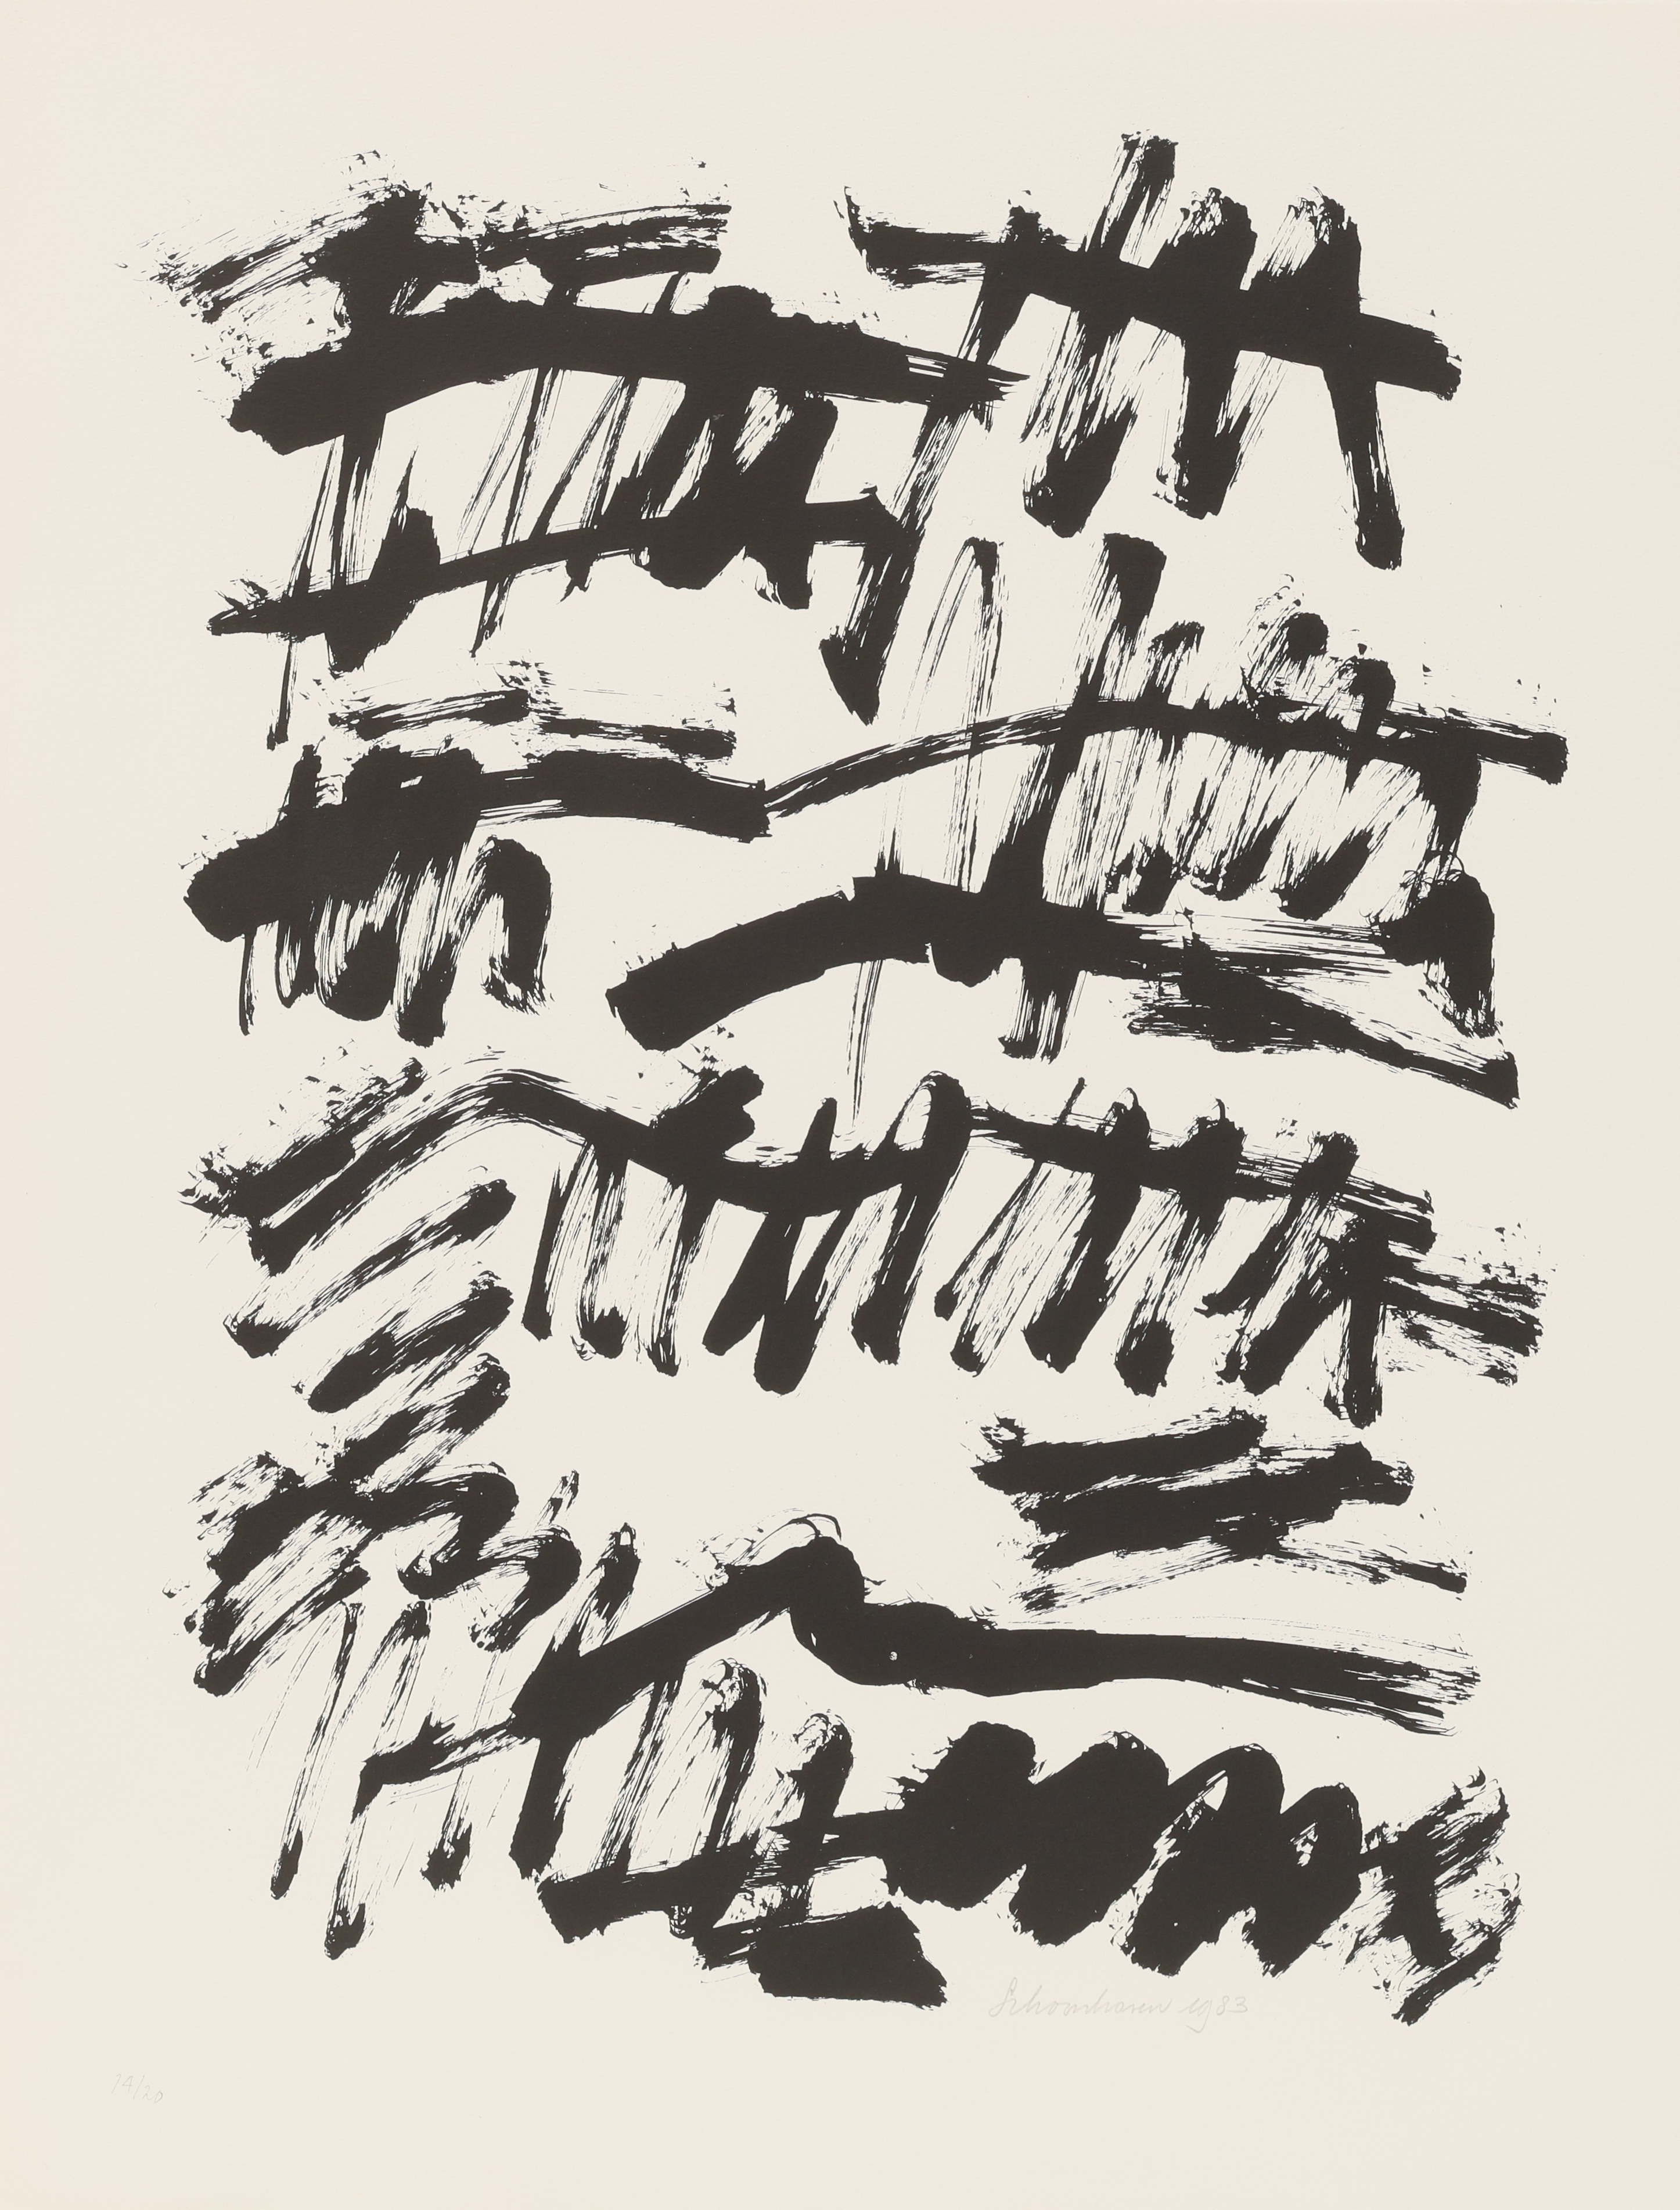 Schoonhoven 1983
14/20